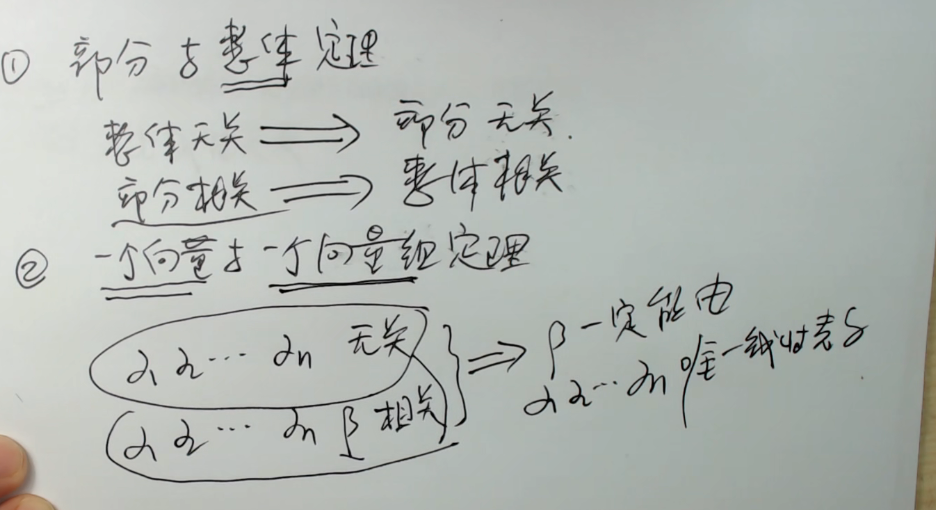 ① 部分与整体定理
整体无关 ⟹ 部分无关.
部分相关 ⟹ 整体相关
② 一个向量与一个向量组定理
α₁ α₂ ⋯ αₙ 无关
α₁ α₂ ⋯ αₙ β 相关
⟹ β一定能由
α₁ α₂ ⋯ αₙ 唯一线性表示